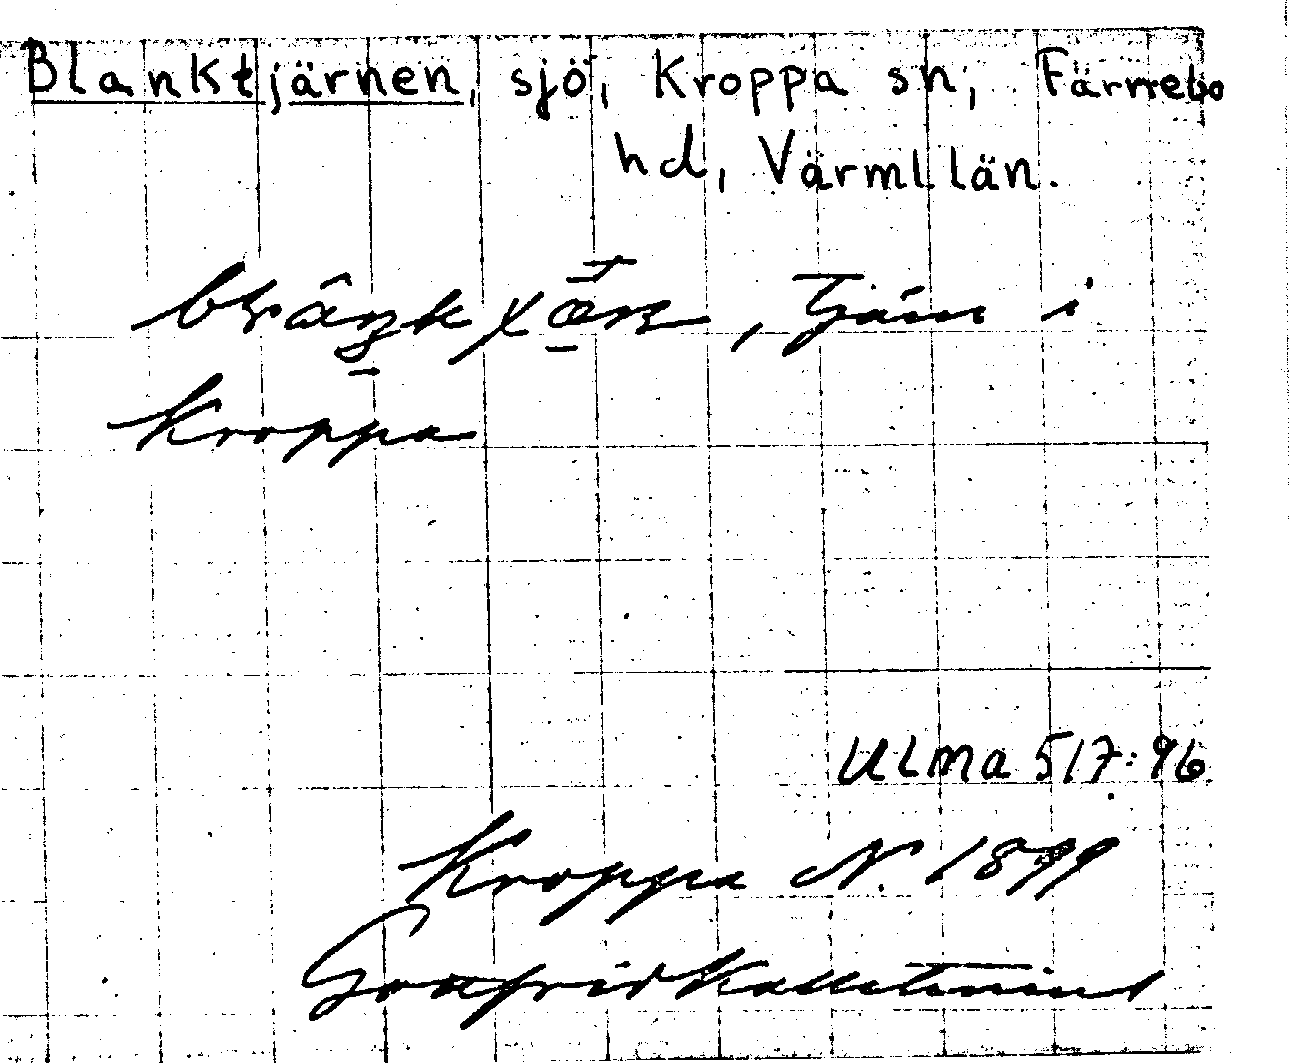 Blanktjärnen, sjö, Kroppa sn, Färnebo
hd, Värml. län.
Tjärn i
Kroppa
ULMA 517:96
Kroppa N. 1899
Gottfrid Kallstenius